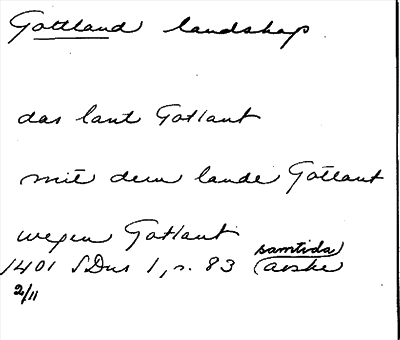 Gottland landskap
das lant Gotlant
mit dem lande Gotlant
wegen Gotlant
samtida
1401 SDns 1, s. 83 (avskr
2/11